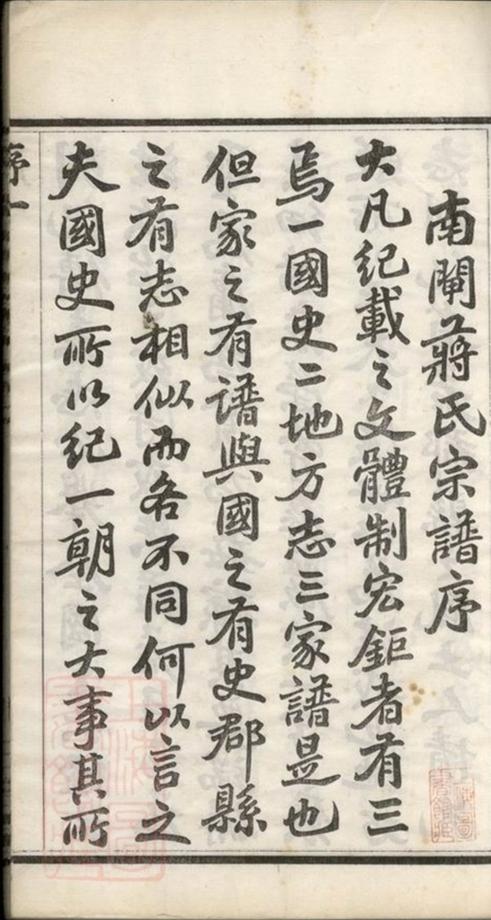 南閘蔣氏宗譜序
大凡紀載之文體制宏鉅者有三
焉一國史二地方志三家譜是也
但家之有譜與國之有史郡縣
之有志相似而各不同何以言之
夫國史所以紀一朝之大事其所
序一